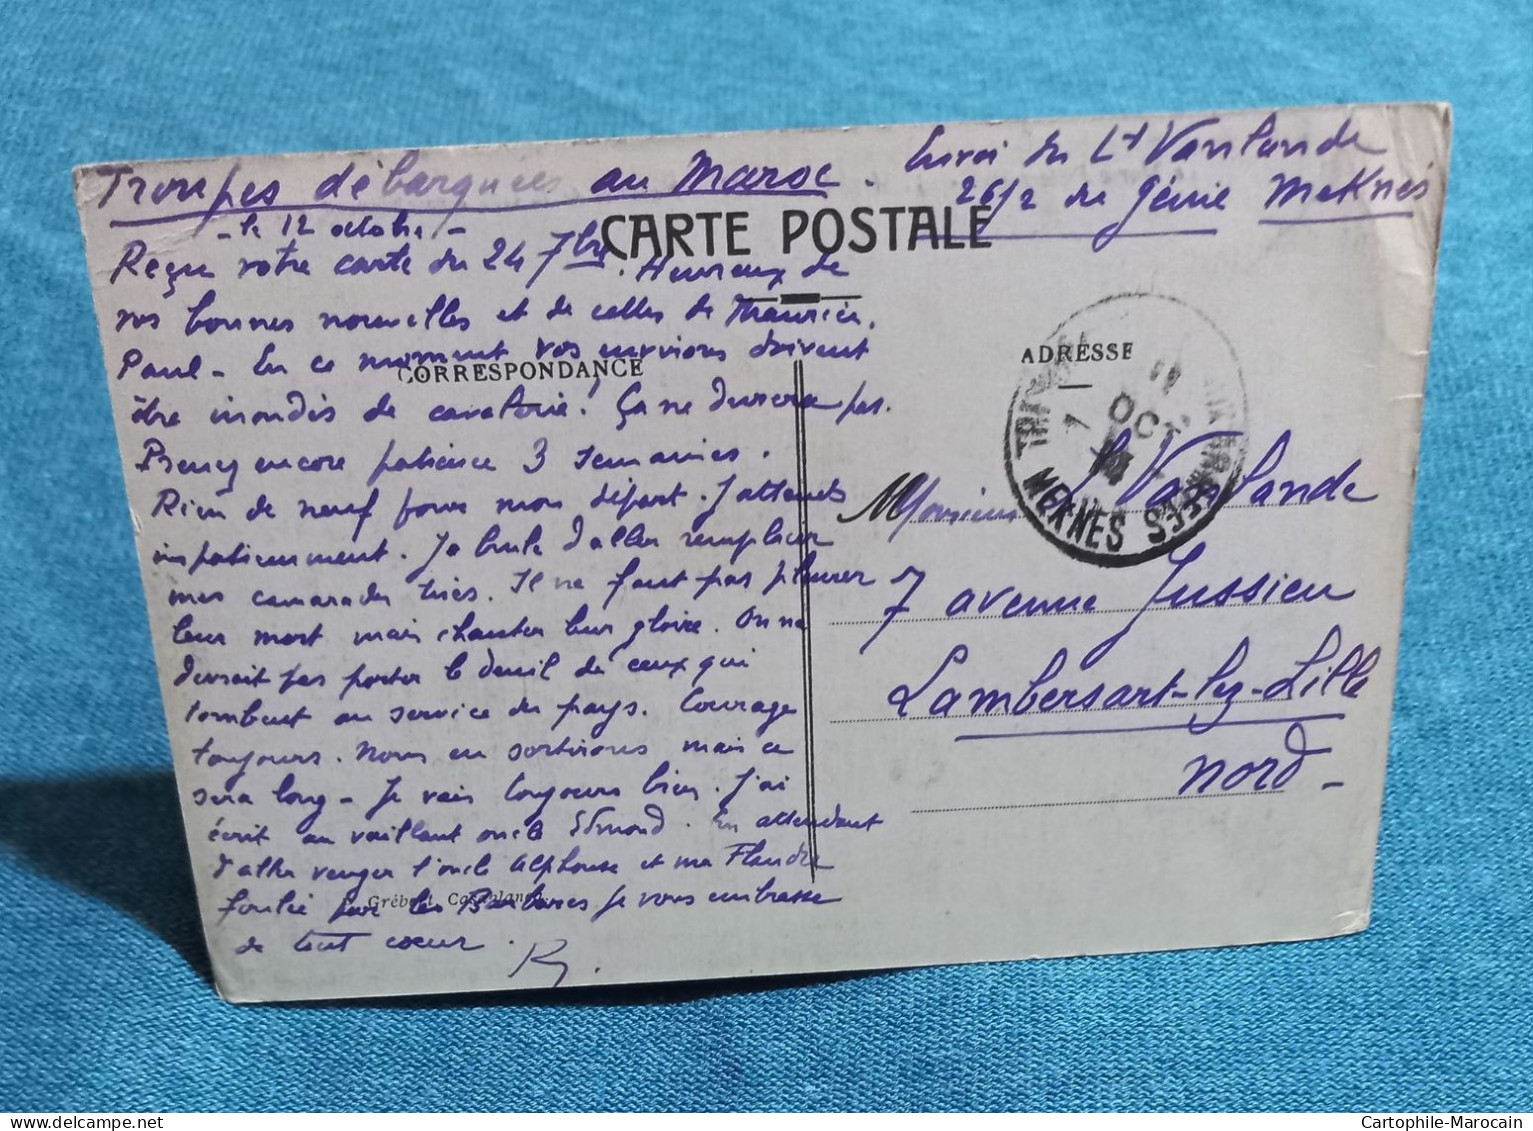 Troupes débarquées au Maroc. Envoi du Lt Vanlande
26/2 du Génie Meknès
- le 12 octobre -
CARTE POSTALE
Reçu votre carte du 24 7bre. Heureux de
vos bonnes nouvelles et de celles de Maurice,
Paul - En ce moment vos environs doivent
CORRESPONDANCE
ADRESSE
être inondés de cavalerie! Ça ne durera pas.
Prenez encore patience 3 semaines.
Rien de neuf pour mon départ. J'attends
impatiemment. Je brule d'aller remplacer
mes camarades tués. Il ne faut pas pleurer
leur mort mais chanter leur gloire. On ne
devrait pas porter le deuil de ceux qui
tombent au service du pays. Courage
toujours. Nous en sortirons mais ce
sera long - Je vais toujours bien. J'ai
écrit au vaillant oncle Edmond. En attendant
d'aller venger l'oncle Alphonse et ma Flandre
foulée par les Barbares je vous embrasse
de tout coeur.
Grébert Casablanca
MEKNES
OCT
Monsieur Vanlande
7 avenue Jussieu
Lambersart-lez-Lille
Nord -
Cartophile-Marocain